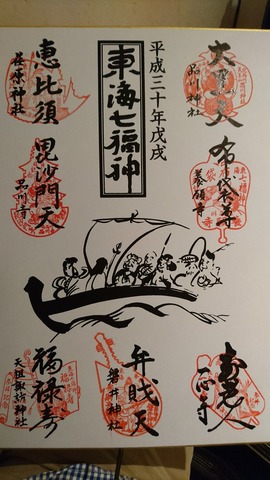 平成三十年戊戌
東海七福神
大黒天
品川神社
布袋尊
養願寺
寿老人
一心寺
恵比須
荏原神社
毘沙門天
品川寺
弁財天
磐井神社
福禄寿
天祖諏訪神社